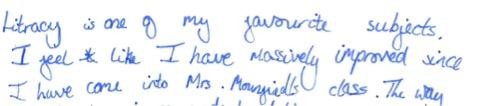 Litracy is one of my favourite subjects.
I feel like I have massively improved since
I have come into Mrs. class. The way